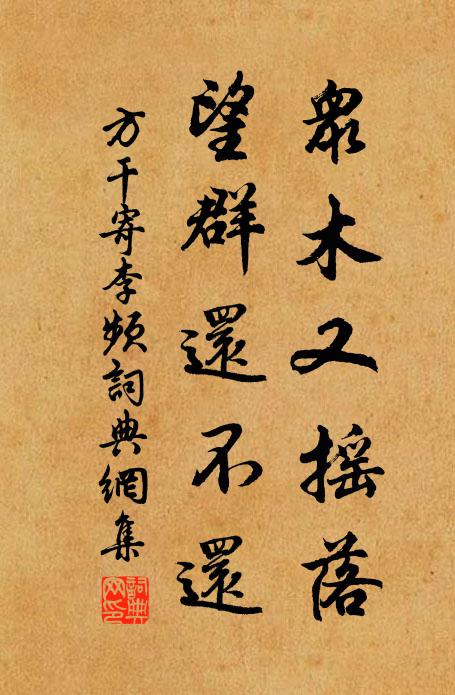 眾木又搖落
望群還不還
方干寄李頻詞典網集
詞典
網印